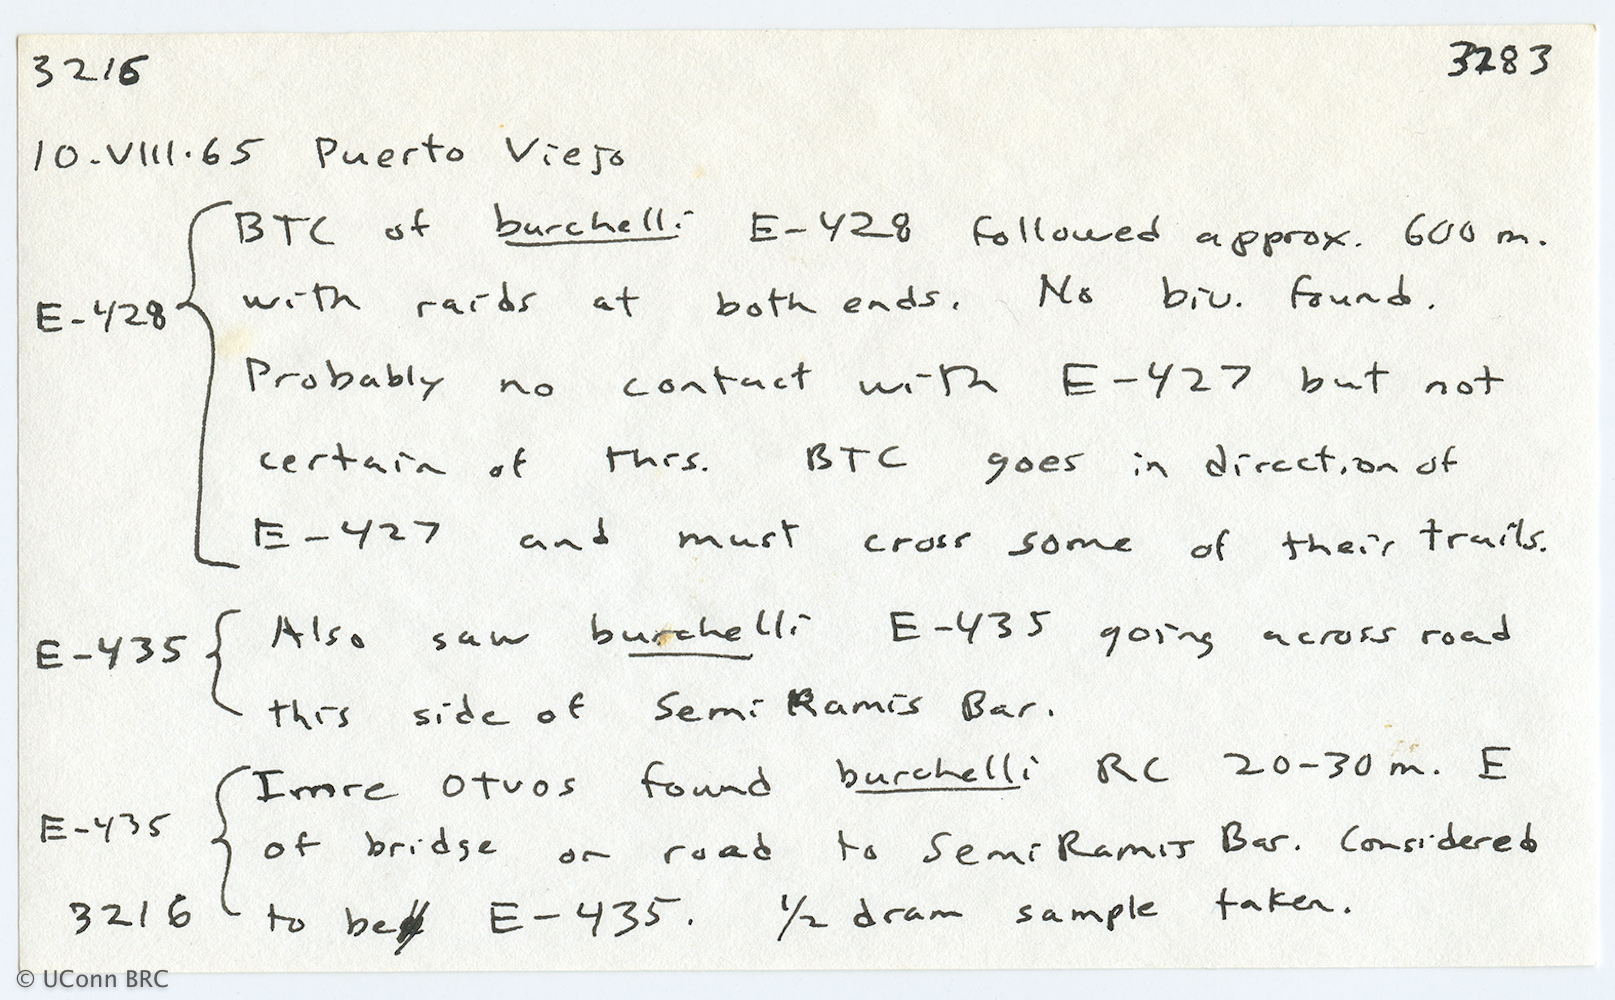 3216 3283
10.VIII.65 Puerto Viejo
BTC of burchelli E-428 followed approx. 600 m.
E-428 with raids at both ends. No biv. found.
Probably no contact with E-427 but not
certain of this. BTC goes in direction of
E-427 and must cross some of their trails.
E-435 Also saw burchelli E-435 going across road
this side of Semi Ramis Bar.
Imre Otvos found burchelli RC 20-30 m. E
E-435 of bridge on road to Semi Ramis Bar. Considered
3216 to be E-435. 1/2 dram sample taken.
© UConn BRC